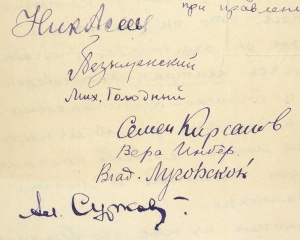 при правлени
Ник. Асеев
Безыменский
Мих. Голодный
Семен Кирсанов
Вера Инбер.
Влад. Луговской
Ал. Сурков.